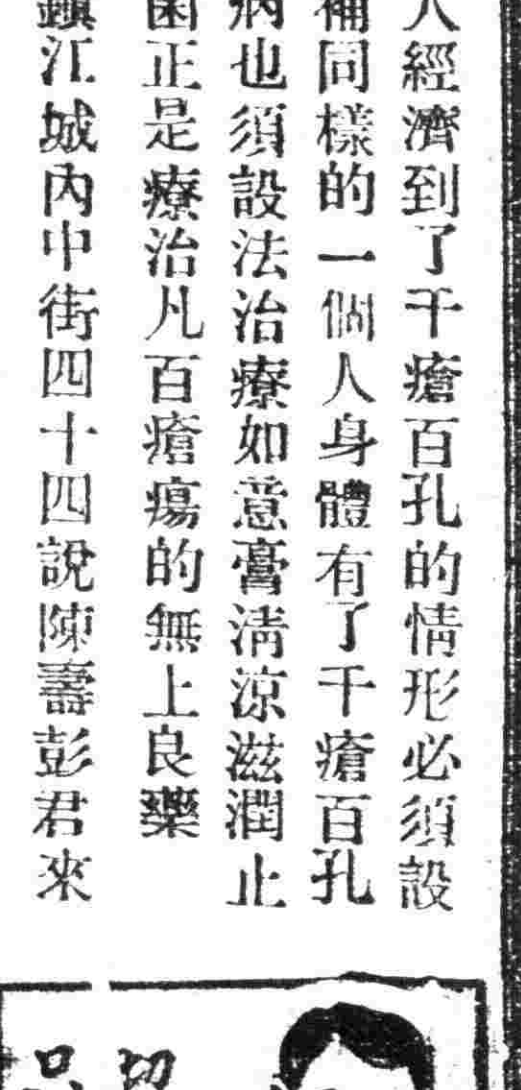 人經濟到了千瘡百孔的情形必須設
補同樣的一個人身體有了千瘡百孔
病也須設法治療如意膏清涼滋潤止
菌正是療治凡百瘡瘍的無上良藥
鎮江城內中街四十四說陳壽彭君來
切